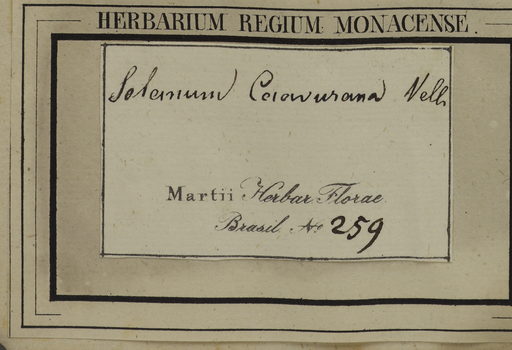 HERBARIUM REGIUM MONACENSE.
Solanum Caavurana Vell.
Martii Herbar. Florae
Brasil. No 259